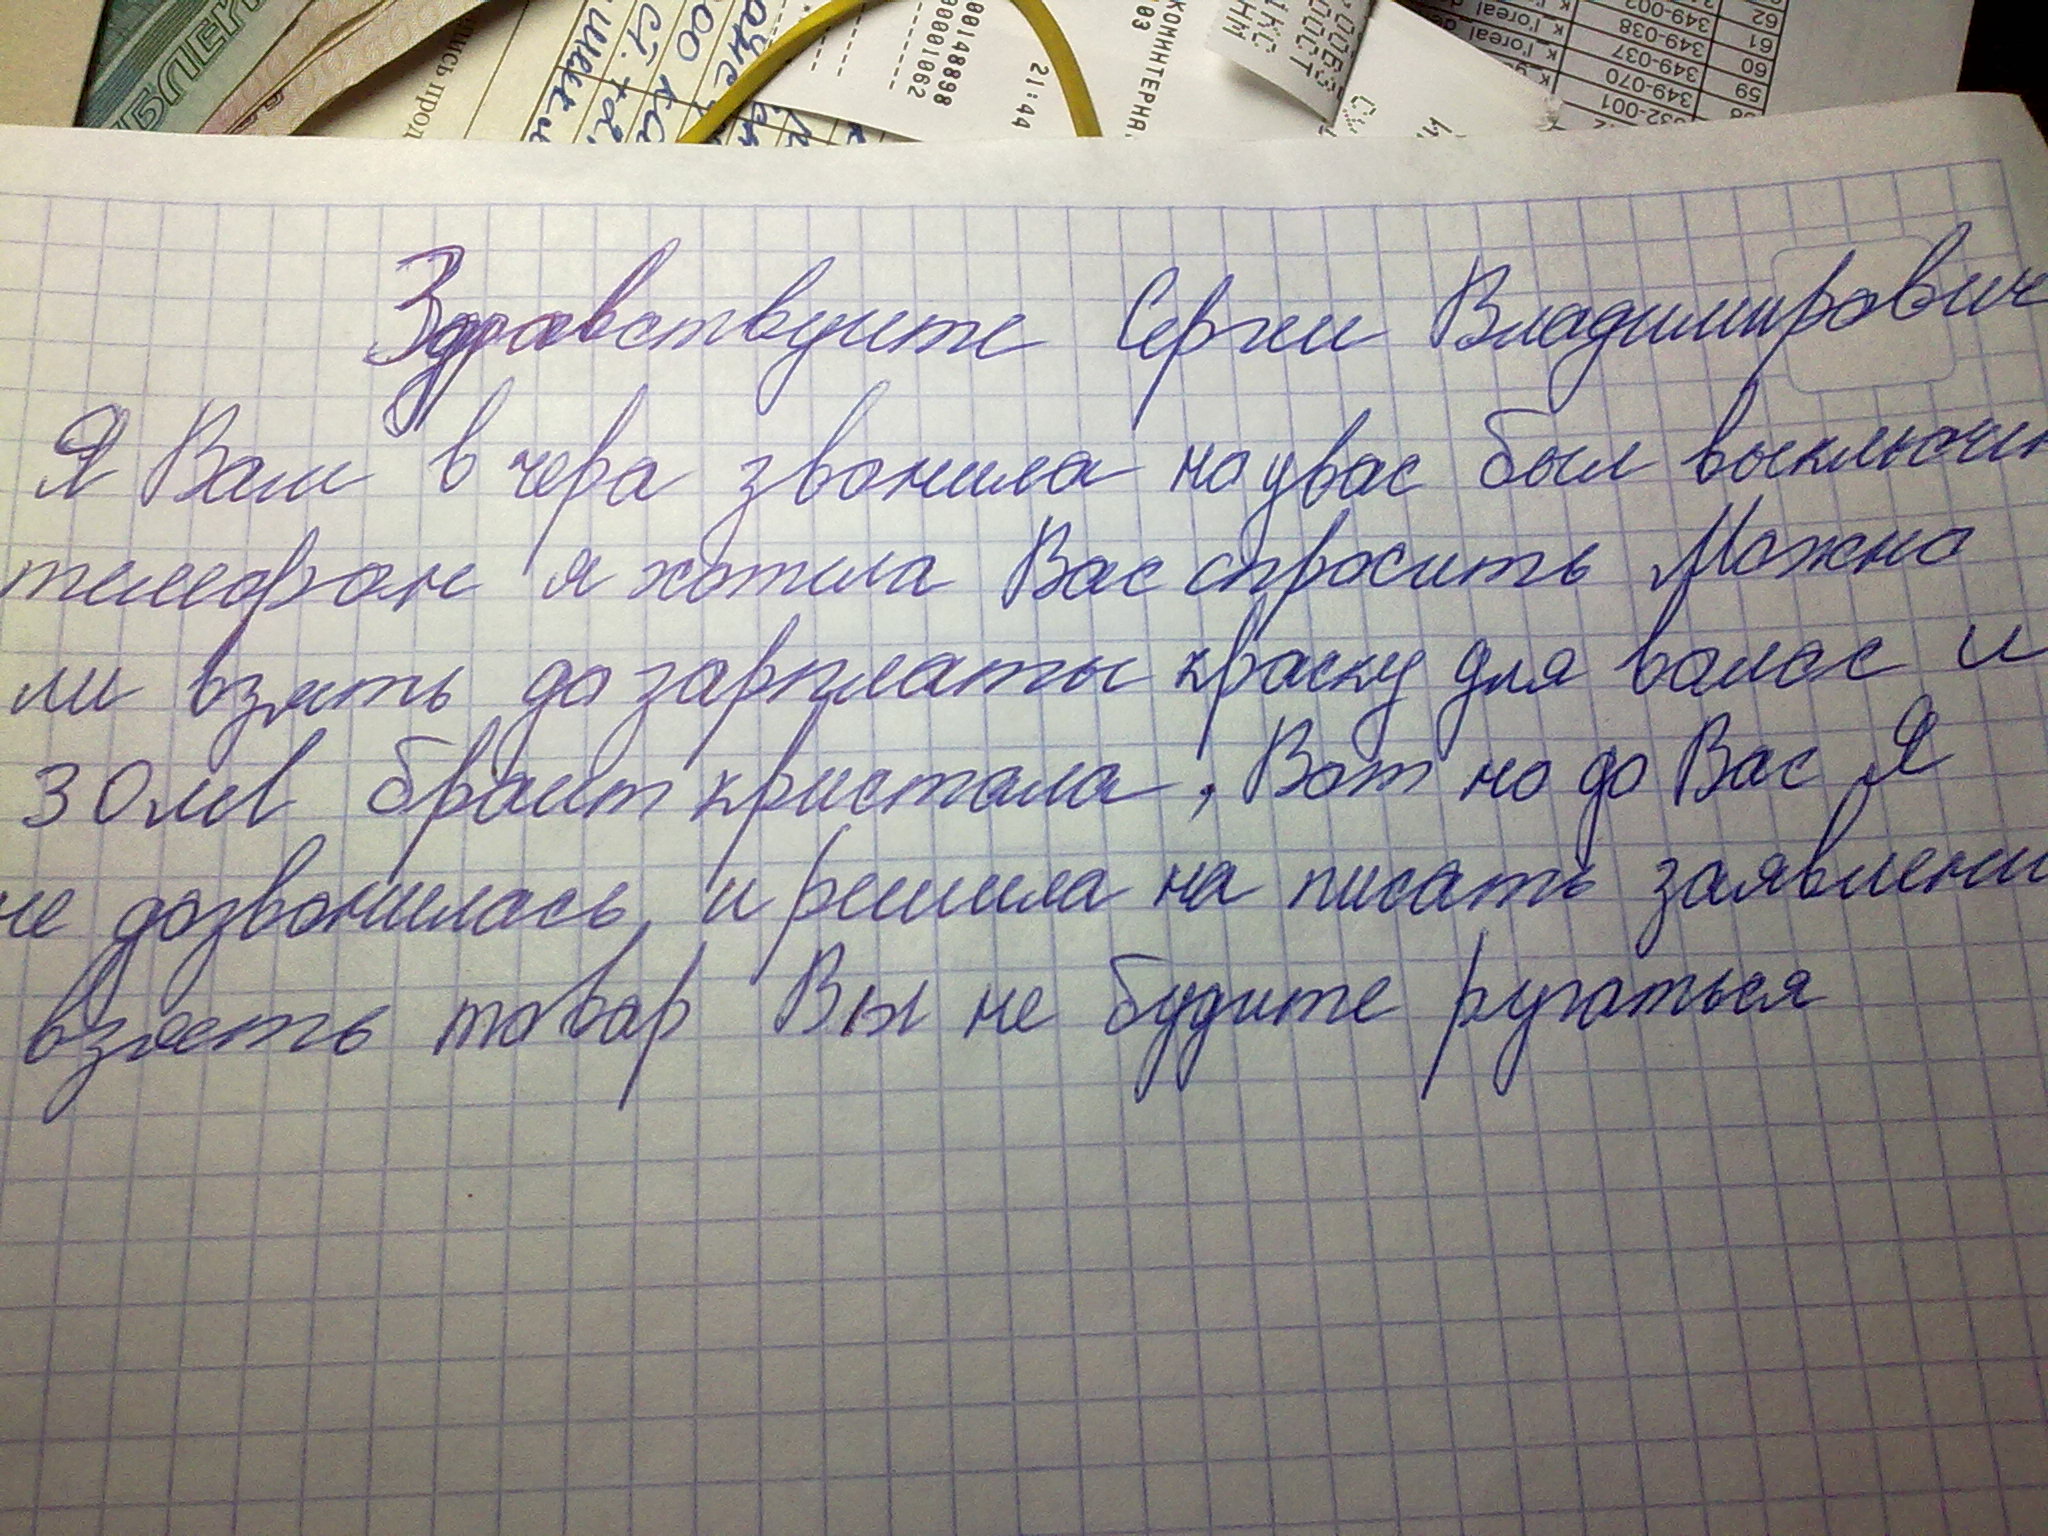 Здравствуите Сергеи Владимирович
Я Вам в чера звонила но увас был выключин
телефон я хотела Вас спросить Можно
ли взять до зарплаты краску для волос и
30 мл браит кристала, Вот но до Вас Я
не дозвонилась и решила на писать заявлени
взять товар Вы не будите ругаться
00148898
00001062
21:44
КОМИНТЕРНА
03
349-038
349-037
349-070
62
61
60
59